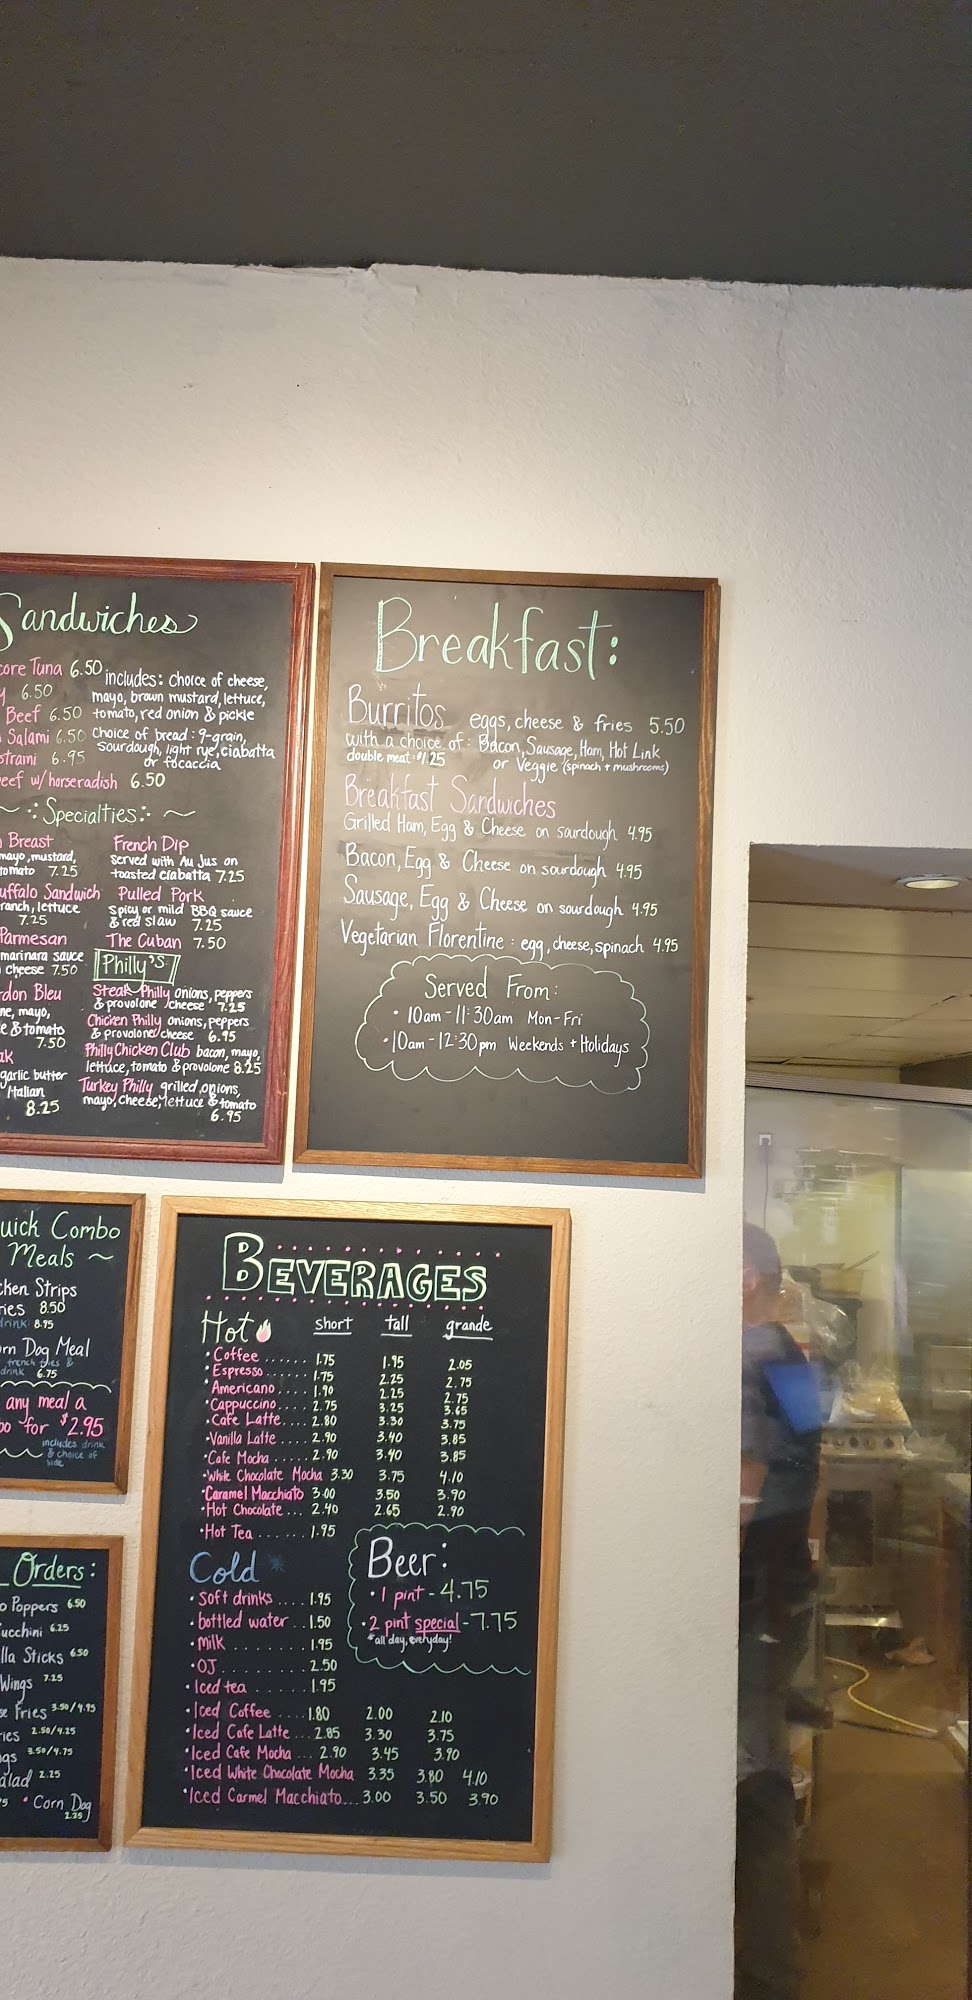 Sandwiches
core Tuna 6.50
y 6.50
Beef 6.50
Salami 6.50
strami 6.95
eef w/horseradish 6.50
includes: choice of cheese,
mayo, brown mustard, lettuce,
tomato, red onion & pickle
Choice of bread: 9-grain,
sourdough, light rye, ciabatta
or focaccia
Specialties:
Breast
mayo, mustard,
tomato 7.25
uffalo Sandwich
ranch, lettuce
7.25
Parmesan
marinara sauce
cheese 7.50
don Bleu
ne, mayo,
e & tomato
7.50
ak
garlic butter
Italian
8.25
French Dip
served with Au Jus on
toasted ciabatta 7.25
Pulled Pork
spicy or mild BBQ sauce
& red slaw 7.25
The Cuban 7.50
Philly's
Steak Philly onions, peppers
& provolone cheese 7.25
Chicken Philly onions, peppers
& provolone cheese 6.95
Philly Chicken Club bacon, mayo,
lettuce, tomato & provolone 8.25
Turkey Philly grilled onions,
mayo, cheese, lettuce & tomato
6.95
Breakfast:
Burritos eggs, cheese & fries 5.50
with a choice of: Bacon, Sausage, Ham, Hot Link
double meat $1.25 or Veggie (spinach + mushrooms)
Breakfast Sandwiches
Grilled Ham, Egg & Cheese on sourdough 4.95
Bacon, Egg & Cheese on sourdough 4.95
Sausage, Egg & Cheese on sourdough 4.95
Vegetarian Florentine: egg, cheese, spinach 4.95
Served From:
• 10am-11:30am Mon-Fri
• 10am-12:30pm Weekends + Holidays
uick Combo
Meals ~
cken Strips
ries 8.50
drink 8.95
rn Dog Meal
french fries &
drink 6.75
any meal a
bo for $2.95
includes drink
& choice of
side
Orders:
o Poppers 6.50
ucchini 6.25
lla Sticks 6.50
Wings 7.25
se Fries 3.50/4.95
ries 2.50/4.25
ngs 3.50/4.75
alad 2.25
• Corn Dog
2.25
BEVERAGES
Hot short tall grande
• Coffee ...... 1.75 1.95 2.05
• Espresso ...... 1.75 2.25 2.75
• Americano .... 1.90 2.25 2.75
• Cappuccino .... 2.75 3.25 3.65
• Cafe Latte .... 2.80 3.30 3.75
• Vanilla Latte .... 2.90 3.40 3.85
• Cafe Mocha ..... 2.90 3.40 3.85
• White Chocolate Mocha 3.30 3.75 4.10
• Caramel Macchiato 3.00 3.50 3.90
• Hot Chocolate ... 2.40 2.65 2.90
• Hot Tea ...... 1.95
Cold
• soft drinks .... 1.95
• bottled water .. 1.50
• milk ........ 1.95
• OJ ........ 2.50
• Iced tea ...... 1.95
• Iced Coffee .... 1.80 2.00 2.10
• Iced Cafe Latte ... 2.85 3.30 3.75
• Iced Cafe Mocha ... 2.90 3.45 3.90
• Iced White Chocolate Mocha 3.35 3.80 4.10
• Iced Carmel Macchiato ... 3.00 3.50 3.90
Beer:
• 1 pint - 4.75
• 2 pint special - 7.75
*all day, everyday!